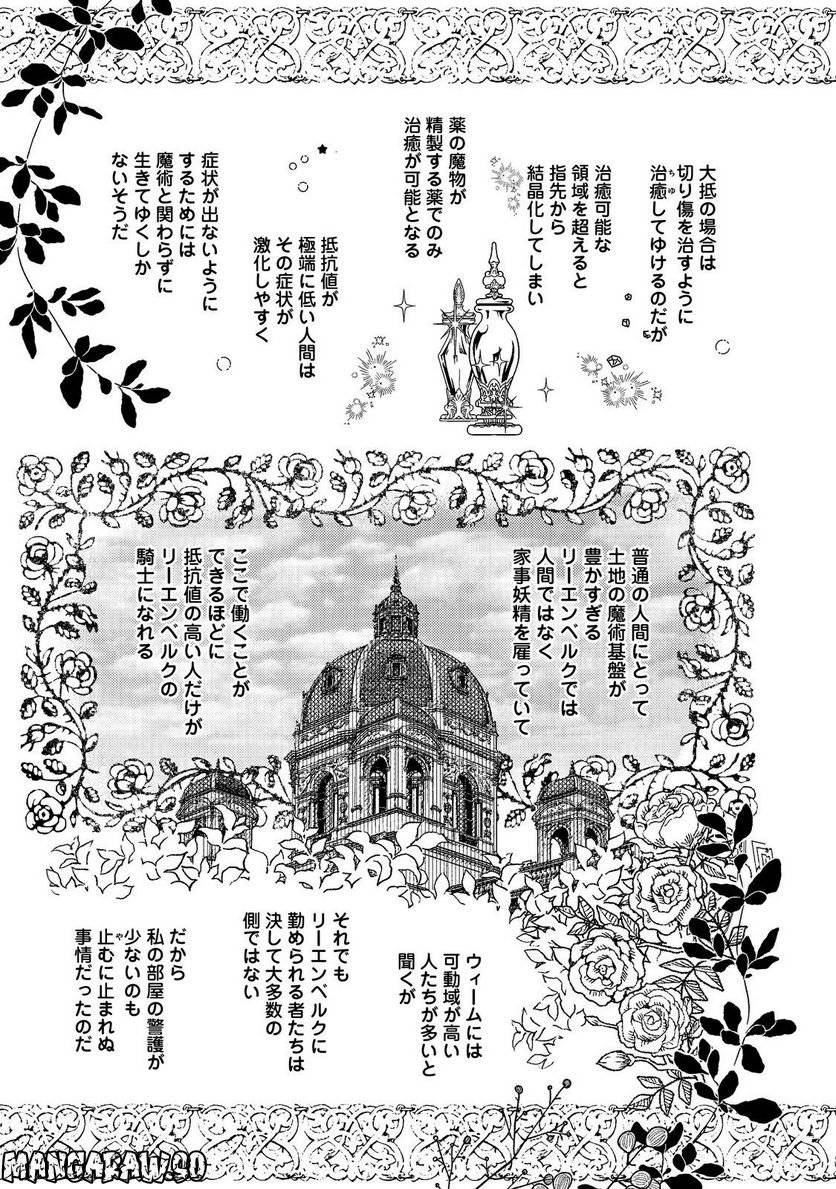 大抵の場合は
切り傷を治すように
治癒してゆけるのだが
ちゆ
治癒可能な
領域を超えると
指先から
結晶化してしまい
薬の魔物が
精製する薬でのみ
治癒が可能となる
抵抗値が
極端に低い人間は
その症状が
激化しやすく
症状が出ないように
するためには
魔術と関わらずに
生きてゆくしか
ないそうだ
普通の人間にとって
土地の魔術基盤が
豊かすぎる
リーエンベルクでは
人間ではなく
家事妖精を雇っていて
ここで働くことが
できるほどに
抵抗値の高い人だけが
リーエンベルクの
騎士になれる
ウィームには
可動域が高い
人たちが多いと
聞くが
それでも
リーエンベルクに
勤められる者たちは
決して大多数の
側ではない
だから
私の部屋の警護が
少ないのも
止むに止まれぬ
や
事情だったのだ
MANGARAW.GO